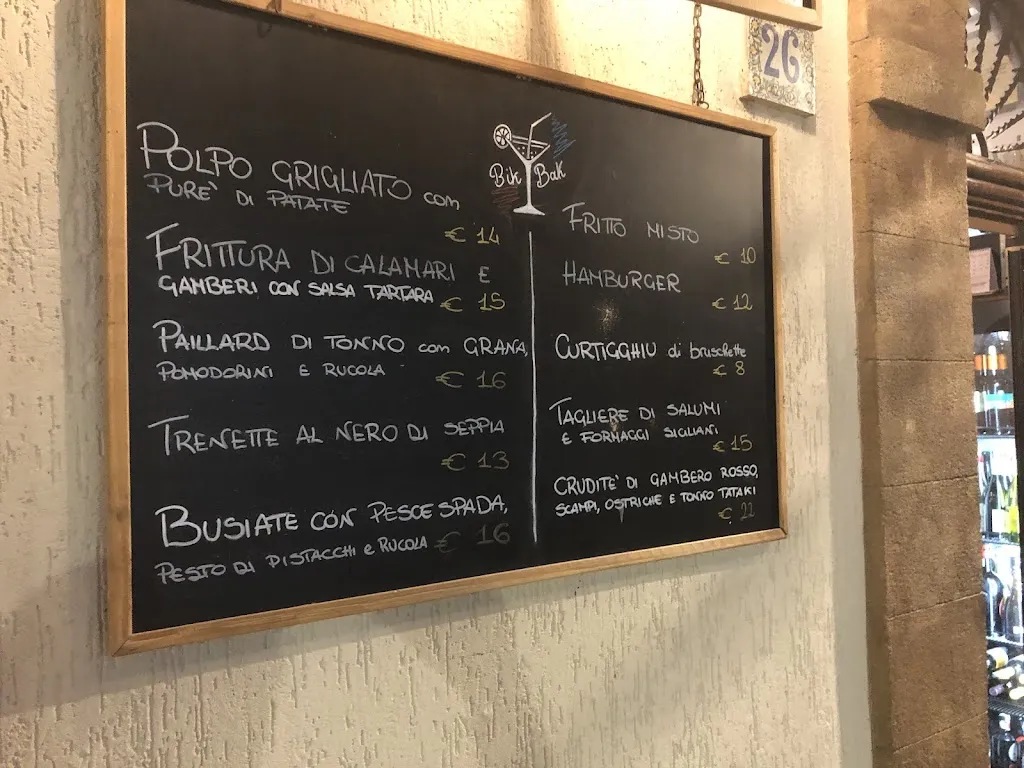 26
Bik Bak
POLPO GRIGLIATO con
PURE' DI PATATE
€ 14
FRITTURA DI CALAMARI E
GAMBERI CON SALSA TARTARA € 15
PAILLARD DI TONNO con GRANA,
POMODORINI E RUCOLA € 16
TRENETTE AL NERO DI SEPPIA
€ 13
BUSIATE CON PESCE SPADA,
PESTO DI PISTACCHI e RUCOLA € 16
FRITTO MISTO
€ 10
HAMBURGER
€ 12
CURTIGGHIU di bruschette
€ 8
TAGLIERE DI SALUMI
E FORMAGGI SICILIANI
€ 15
CRUDITE' DI GAMBERO ROSSO,
SCAMPI, OSTRICHE E TONNO TATAKI
€ 22